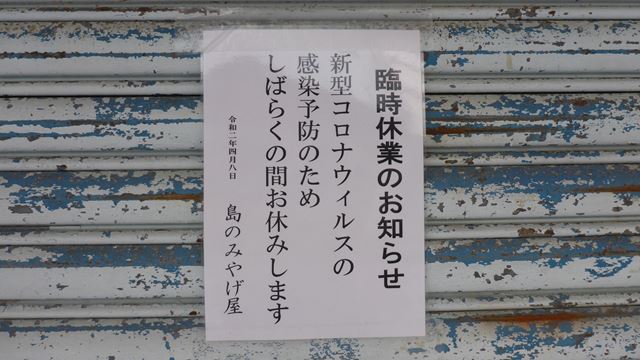 臨時休業のお知らせ
新型コロナウィルスの
感染予防のため
しばらくの間お休みします
令和二年四月八日
島のみやげ屋